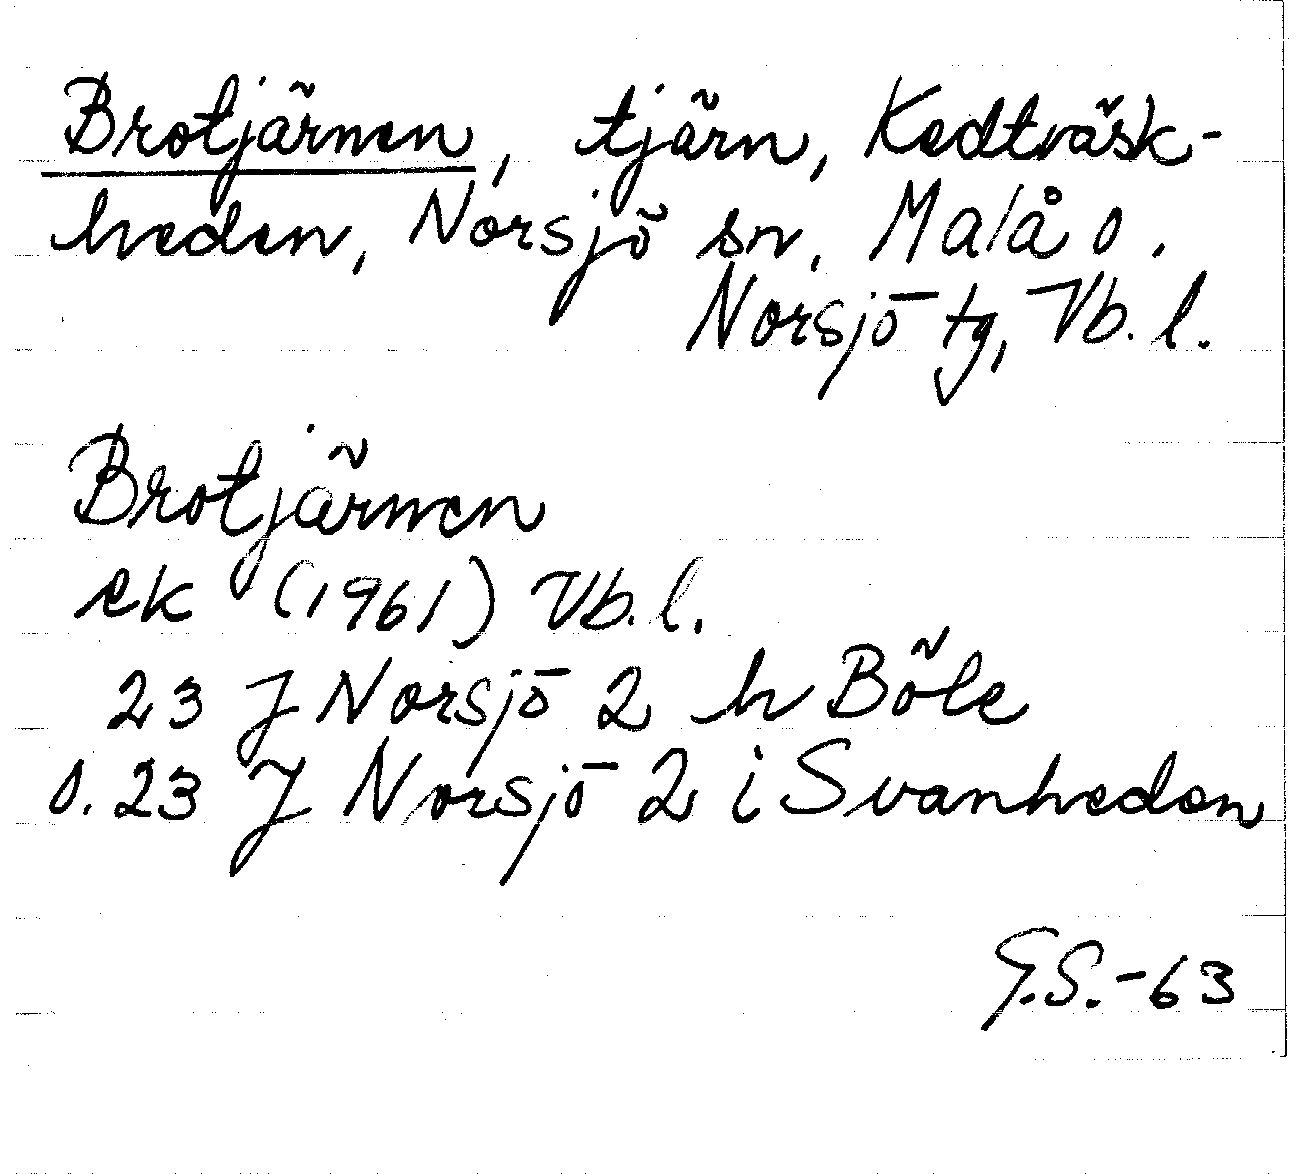 Brotjärnen, tjärn, Kedträsk-
heden, Norsjö sn, Malå o.
Norsjö tg, Vb. l.
Brotjärnen
ek (1961) Vb. l.
23 J Norsjö 2 h Böle
o. 23 J Norsjö 2 i Svanheden
G.S.-63